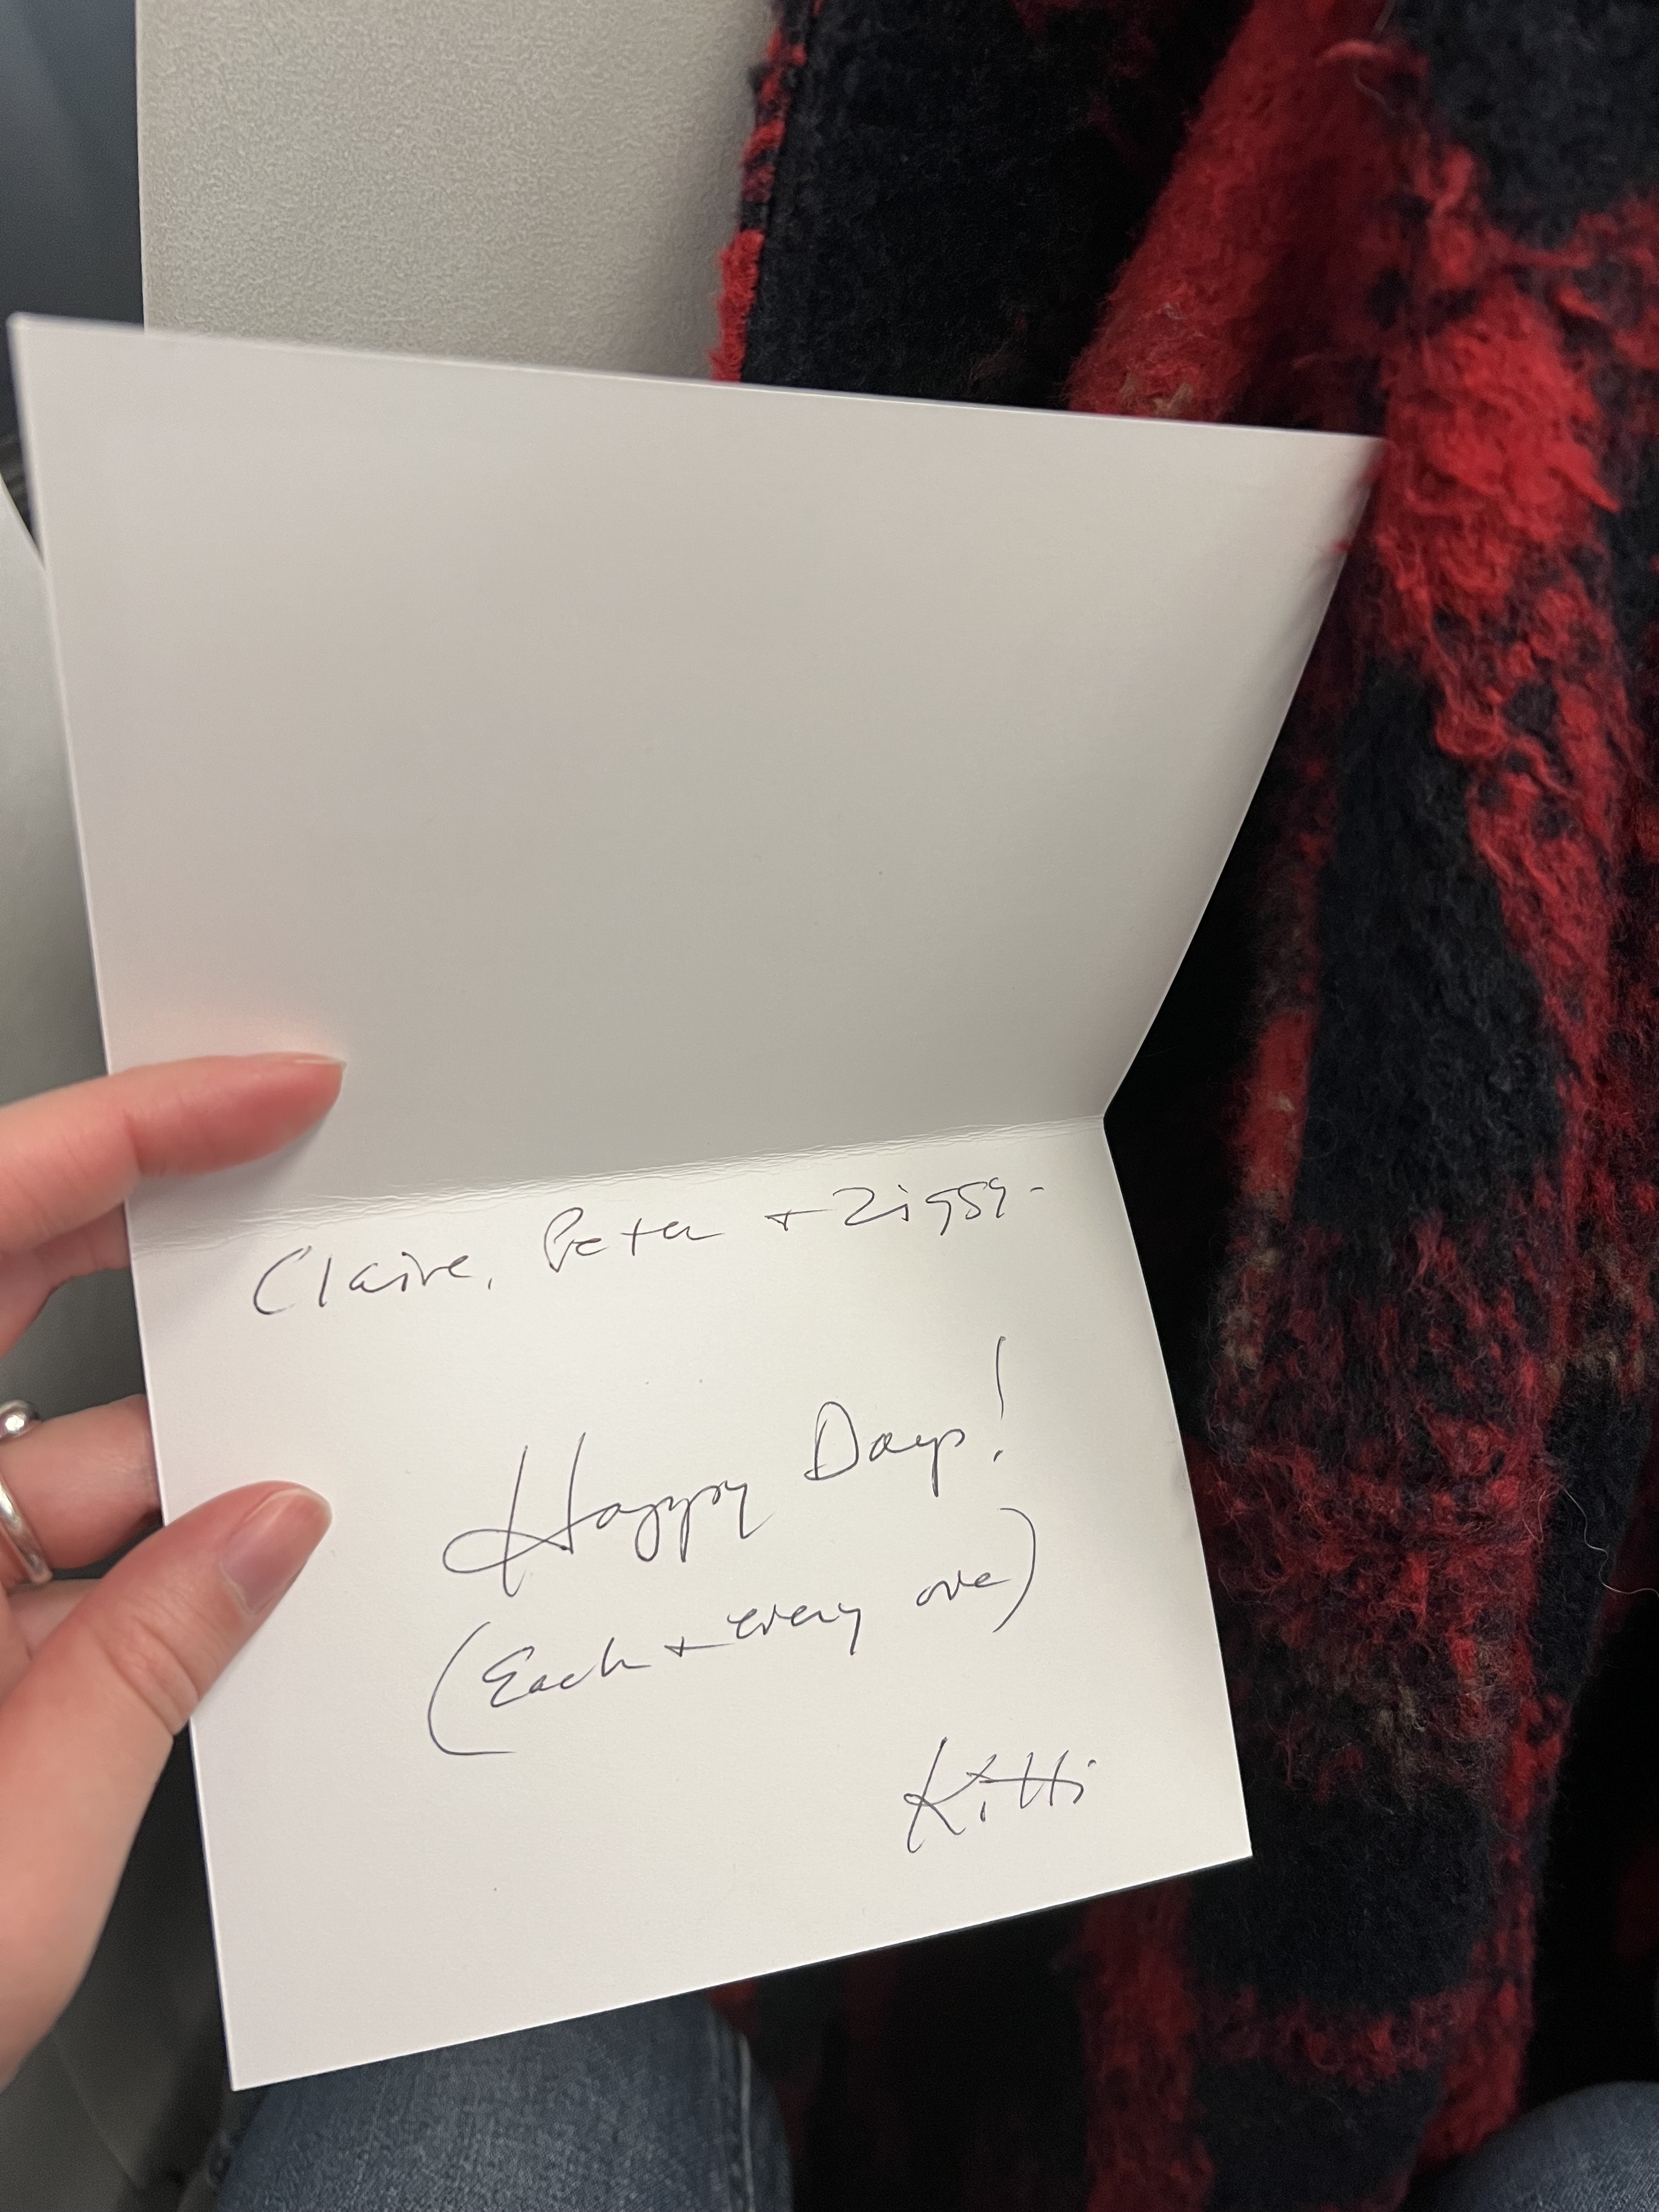 Claire, Peter + Ziggy-
Happy Days!
(Each + every one)
Kitti